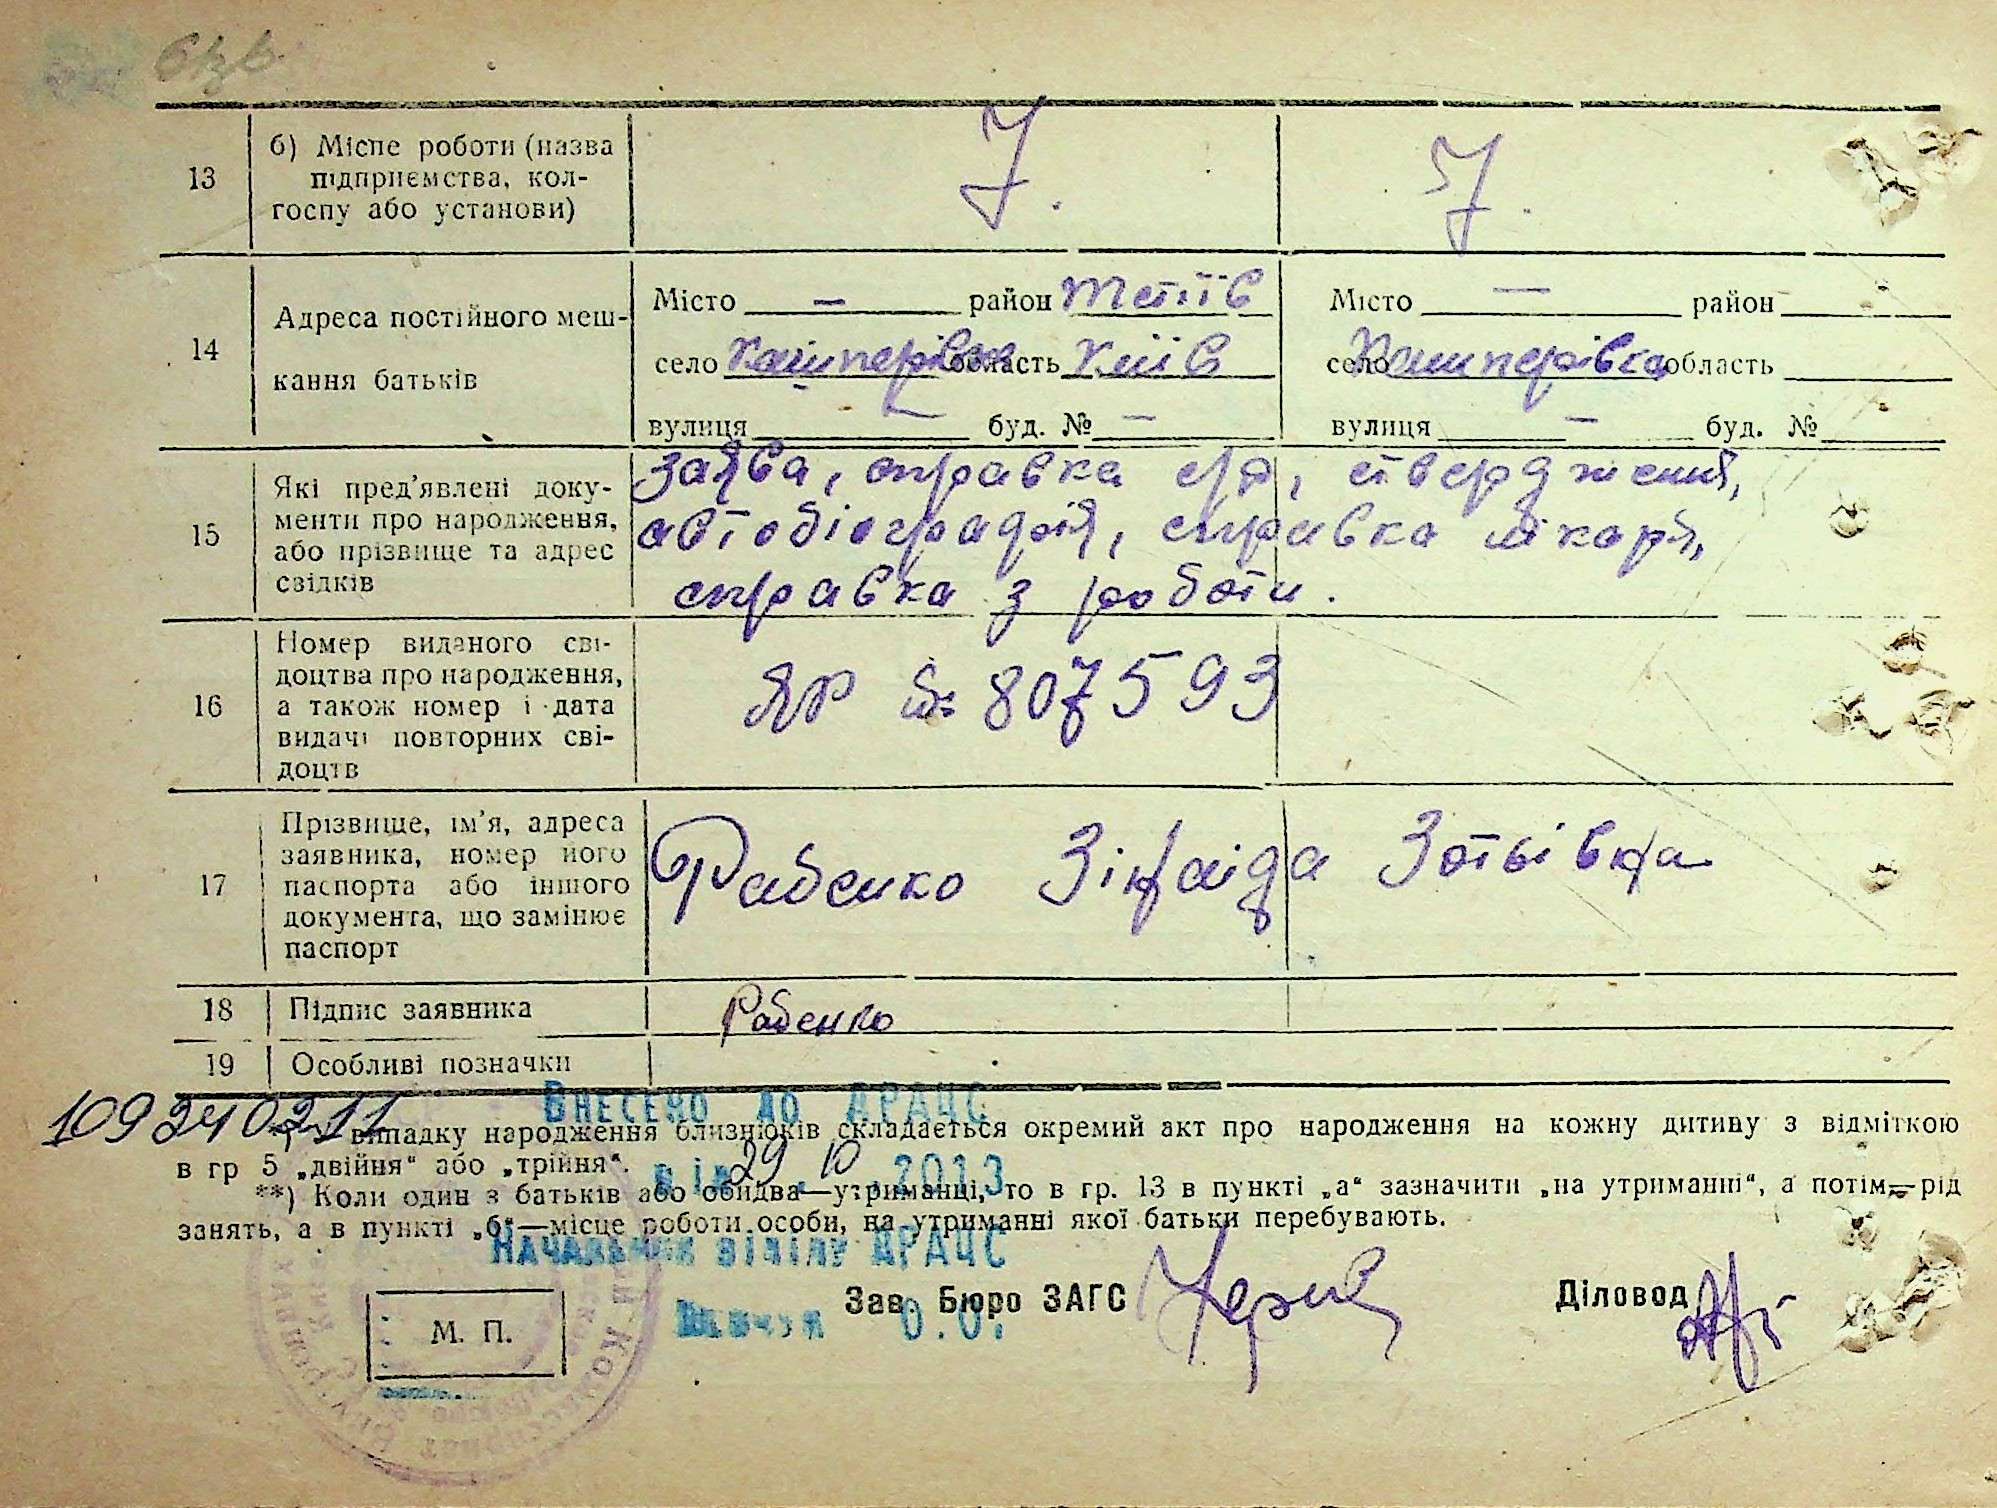 13
б) Місце роботи (назва
підприємства, кол-
госпу або установи)
14
Адреса постійного меш-
кання батьків
Місто — район Тетіїв
село Кашперівка область Київ
вулиця — буд. № —
Місто — район
село Кашперівка область
вулиця — буд. №
15
Які пред'явлені доку-
менти про народження,
або прізвище та адрес
свідків
заява, справка с/р, ствердження,
автобіографія, справка лікаря,
справка з роботи.
16
Номер виданого сві-
доцтва про народження,
а також номер і дата
видачі повторних сві-
доцтв
ЯР № 807593
17
Прізвище, ім'я, адреса
заявника, номер його
паспорта або іншого
документа, що замінює
паспорт
Рабенко Зінаіда Зотьівна
18
Підпис заявника
Рабенко
19
Особливі позначки
Внесено до ДРАЦС
109240211
випадку народження близнюків складається окремий акт про народження на кожну дитину з відміткою
в гр 5 „двійня“ або „трійня“.
від 29.10.2013
**) Коли один з батьків або обидва—утриманці, то в гр. 13 в пункті „а“ зазначити „на утриманні“, а потім—рід
занять, а в пункті „б“—місце роботи особи, на утриманні якої батьки перебувають.
Начальник відділу ДРАЦС
Зав. Бюро ЗАГС
Діловод
О.О.
М. П.